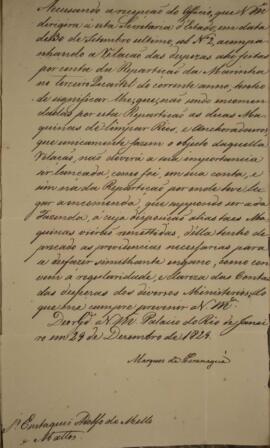 Accusando a recepção do Officio, que V. Mᶜᵉ
dirigira a esta Secretaria d'Estado, em data
de 30 de Setembro ultimo, sob Nº 2, acompa-
nhando a Relação das despezas ahi feitas
por conta da Repartição da Marinha
no terceiro Quartel do corrente anno, tenho
de significar-lhe, que, não sendo encomen-
dadas por esta Repartição as duas Ma-
quinas de limpar Rios, e Ancoradouros,
que unicamente fazem o objecto daquella
Relação, não deverá a sua importancia
ser lançada, como foi, em sua conta, e
sim na da Repartição por onde teve lu-
gar a encomenda, que suppondo ser a da
Fazenda, á cuja disposição alias taes Ma-
quinas vierão remettidas, della tenho de-
precado as providencias necessarias para
se desfazer similhante engano, como con-
vem á regularidade, e clareza das Contas
das despezas dos diversos Ministerios; do
que me cumpre prevenir a V. Mᶜᵉ
Deos Gᵈᵉ a V. Mᶜᵉ Palacio do Rio de Janei-
ro em 29 de Dezembro de 1828.
Marquez de Paranaguá
Sʳ Eustaquio Adolfo de Mello
e Mattos